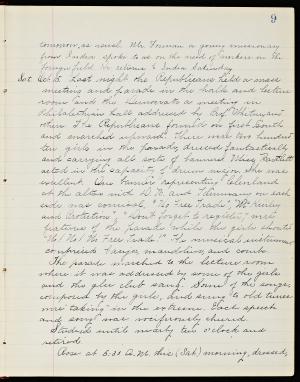 9
tomorrow, as usual. Mr. Forman a young missionary
from Indore spoke to us on the need of workers on the
foreign field. He returns to India Saturday.
Sat. Oct. 5. Last night the Republicans held a mass
meeting and parade in the halls and lecture
room and the Democrats a meeting in
Philalethean Hall addressed by Prof. Whitney and
others. The Republicans formed on first South
and marched upward. There were two hundred
ten girls in the parade, dressed fantastically
and carrying all sorts of banners. Miss Bartlett
acted in the capacity of drum major. She was
excellent. One former representing Cleveland
at the altar with D. B. and Thurman on each
side was comical. "No Free Trade," "McKinley
and Protection," "Don't forget to register," were
features of the parade while the girls shouted
"No! No! No Free Trade". The musical instruments
comprised banjos, mandolins, and combs.
The parade marched to the lecture room
where it was addressed by some of the girls
and the glee club sang. Some of the songs
composed by the girls, and sung to old tunes
were "taking" in the extreme. Each speech
and song was vociferously cheered.
Studied until nearly ten o'clock and
retired.
Rose at 5:30 A.M. this (Sat.) morning, dressed,